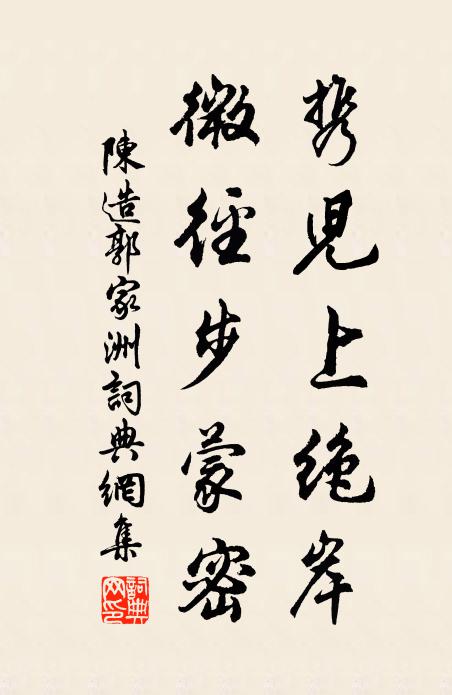 携兒上絶岸
微徑步蒙密
陳造郭家洲詞典網集
詞典網印